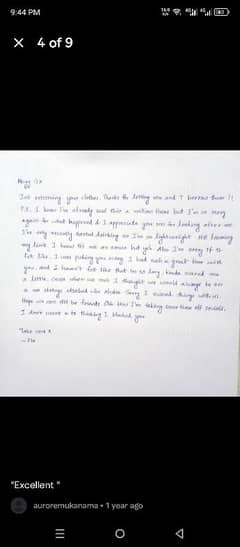 9:44 PM
4 of 9
Just returning your clothes. Thanks for letting me and T borrow them !!
P.S. I know I've already said this a million times but I'm so sorry
again for what happened & I appreciate you for looking after me.
I've only recently started drinking so I'm a lightweight still learning
my limit I know it's no excuse but yeh. Also I'm sorry if it
felt like I was pushing you away I had such a great time with
you and I haven't felt like that in so long, kinda scared me
a little cause when we met I thought we would always be on
a no strings attached vibe Sorry I mixed things with us.
Hope we can still be friends Oh btw I'm taking some time off socials,
I don't want u to thinking I blocked you.
Take care x
"Excellent "
auroremukanama • 1 year ago